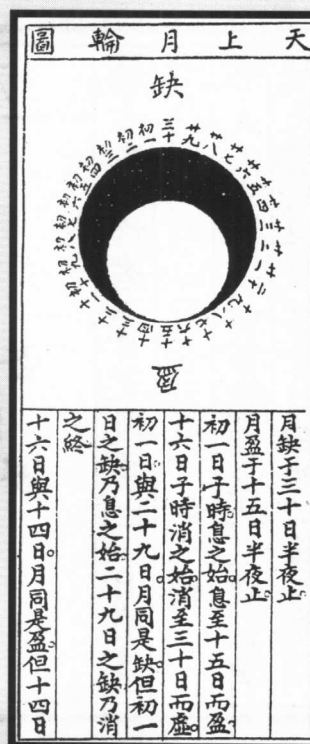 天上月輪圖
缺
初一
初二
初三
初四
初五
初六
初七
初八
初九
初十
十一
十二
十三
十四
十五
十六
十七
十八
十九
二十
廿一
廿二
廿三
廿四
廿五
廿六
廿七
廿八
廿九
三十
盈
月缺于三十日半夜止
月盈于十五日半夜止
初一日子時息之始。息至十五日而盈。
十六日子時消之始。消至三十日而虛。
初一日與二十九日。月同是缺。但初一
日之缺乃息之始。二十九日之缺乃消
之終
十六日與十四日。月同是盈。但十四日